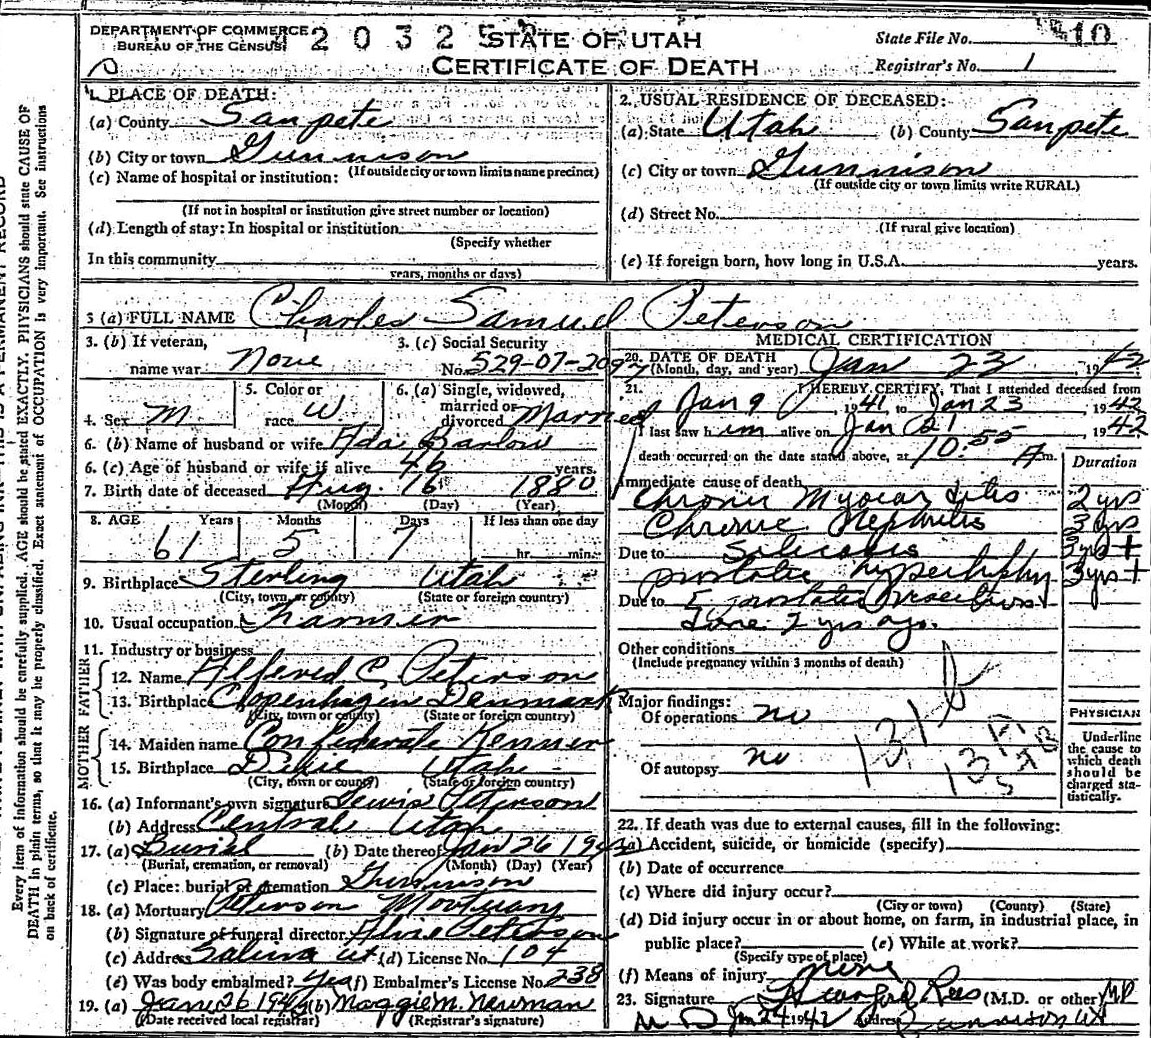 DEPARTMENT OF COMMERCE
BUREAU OF THE CENSUS
2 0 3 2 5
STATE OF UTAH
CERTIFICATE OF DEATH
State File No. 10
Registrar's No. 1
1. PLACE OF DEATH:
(a) County Sanpete
(b) City or town Gunnison
(If outside city or town limits name precinct)
(c) Name of hospital or institution:
(If not in hospital or institution give street number or location)
(d) Length of stay: In hospital or institution
(Specify whether
In this community
years, months or days)
2. USUAL RESIDENCE OF DECEASED:
(a) State Utah (b) County Sanpete
(c) City or town Gunnison
(If outside city or town limits write RURAL)
(d) Street No.
(If rural give location)
(e) If foreign born, how long in U.S.A. years.
3 (a) FULL NAME Charles Samuel Peterson
3. (b) If veteran, name war None
3. (c) Social Security No. 529-07-2097
4. Sex M
5. Color or race W
6. (a) Single, widowed, married or divorced Married
6. (b) Name of husband or wife Ada Barlow
6. (c) Age of husband or wife if alive 46 years.
7. Birth date of deceased Aug. 16 1880
(Month) (Day) (Year)
8. AGE Years Months Days If less than one day
61 5 7 hr. min.
9. Birthplace Sterling Utah
(City, town, or county) (State or foreign country)
10. Usual occupation Farmer
11. Industry or business
FATHER
12. Name Alfered C Peterson
13. Birthplace Copenhagen Denmark
(City, town or county) (State or foreign country)
MOTHER
14. Maiden name Confederate Kenner
15. Birthplace Dixie Utah
(City, town or county) (State or foreign country)
16. (a) Informant's own signature Lewis Peterson
(b) Address Centrale Utah
17. (a) Burial (b) Date thereof Jan 26 1942
(Burial, cremation, or removal) (Month) (Day) (Year)
(c) Place: burial or cremation Gunnison
18. (a) Mortuary Peterson Mortuary
(b) Signature of funeral director Peterson
(c) Address Salina Ut (d) License No. 104
(e) Was body embalmed? Yes (f) Embalmer's License No. 238
19. (a) Jan. 26 (b) Maggie M. Newman
(Date received local registrar) (Registrar's signature)
MEDICAL CERTIFICATION
20. DATE OF DEATH
(Month, day, and year) Jan 23 1942
21. I HEREBY CERTIFY, That I attended deceased from
Jan 9 1941 to Jan 23 1942
I last saw him alive on Jan 21 1942
death occurred on the date stated above, at 10:55 A m.
Immediate cause of death Duration
Chronic Myocarditis 2 yrs
Chronic Nephritis 3 yrs
Due to Silicosis 5 yrs +
prostatic hypertrophy 3 yrs +
Due to prostatic
done 2 yrs ago.
Other conditions
(Include pregnancy within 3 months of death)
Major findings:
Of operations no
Of autopsy no
131 b
PHYSICIAN
Underline
the cause to
which death
should be
charged sta-
tistically.
22. If death was due to external causes, fill in the following:
(a) Accident, suicide, or homicide (specify)
(b) Date of occurrence
(c) Where did injury occur?
(City or town) (County) (State)
(d) Did injury occur in or about home, on farm, in industrial place, in
public place? (e) While at work?
(Specify type of place)
(f) Means of injury none
23. Signature Rees (M.D. or other) MD
M D Jan 24 1942 Address Gunnison Ut
Every item of information should be carefully supplied. AGE should be stated EXACTLY. PHYSICIANS should state CAUSE OF
DEATH in plain terms, so that it may be properly classified. Exact statement of OCCUPATION is very important. See instructions
on back of certificate.